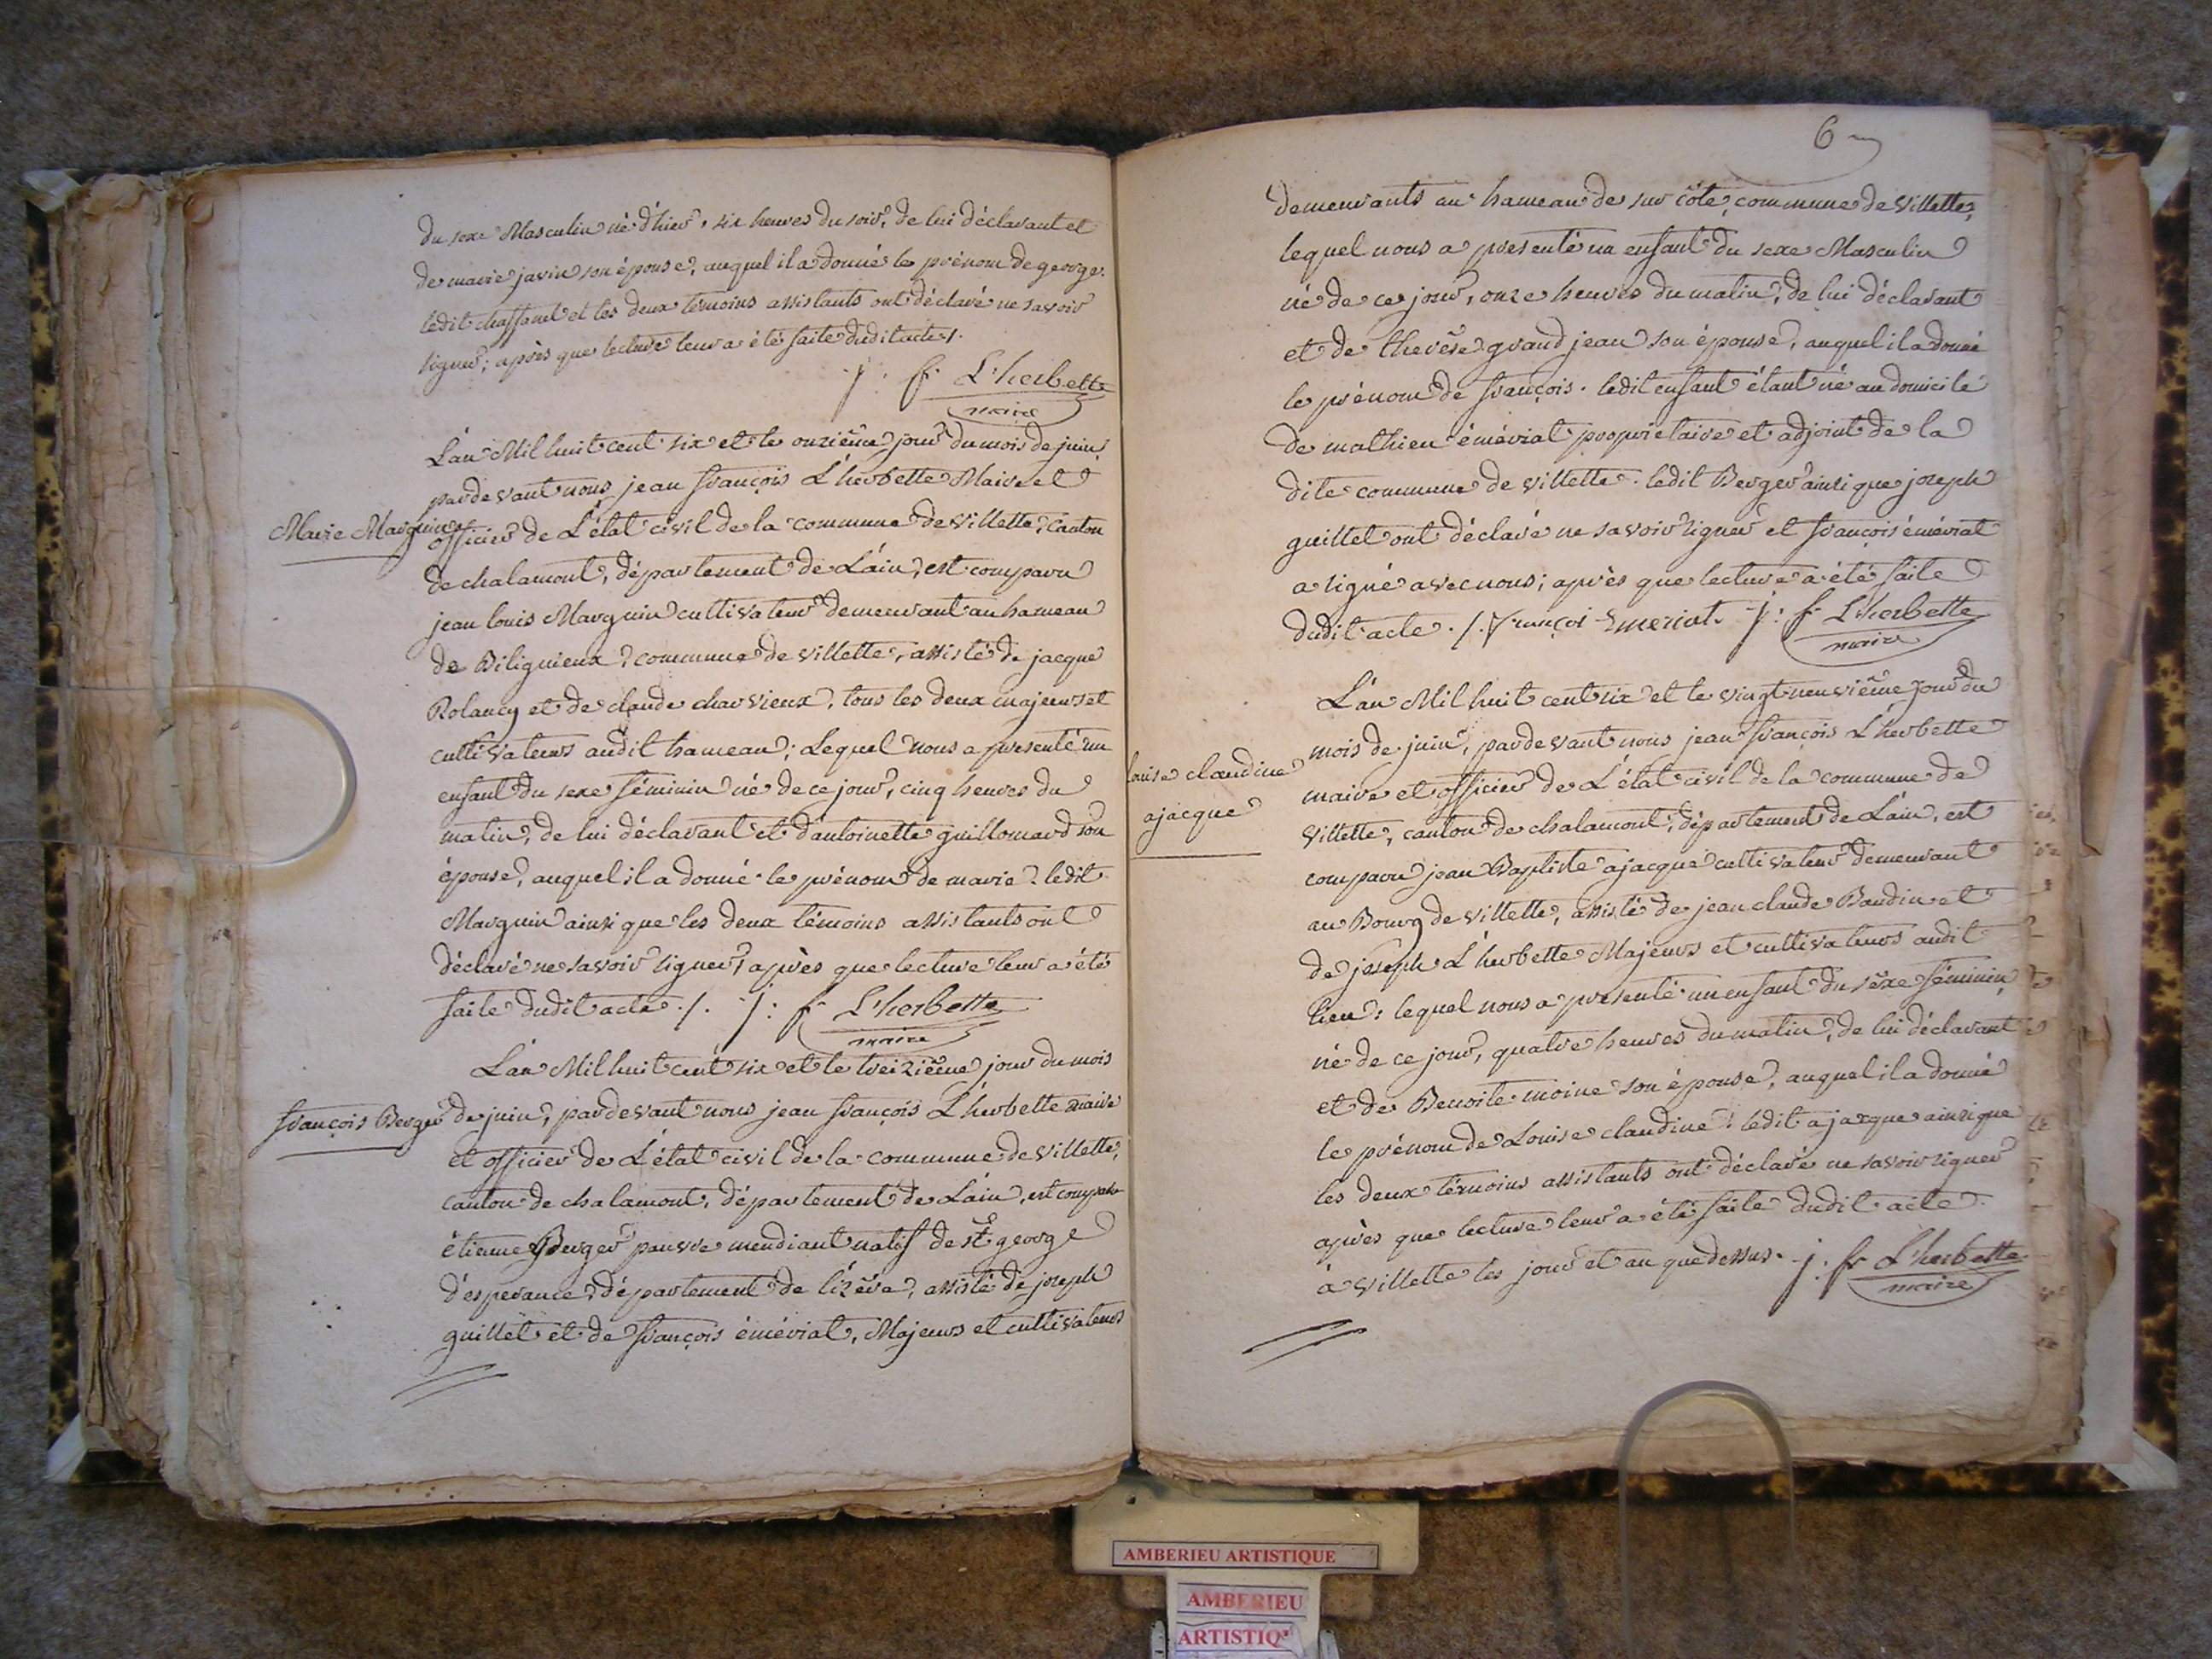 du sexe Masculin né d'hier, six heures du soir, de lui déclarant et
de marie javin son épouse, auquel il a donné le prénom de george.
ledit chassanel et les deux témoins assistants ont déclaré ne savoir
signer; après que lecture leur a été faite dudit acte /.
j: fr L'herbette
maire
L'an Mil huit cent six et le onzième jour du mois de juin,
pardevant nous jean françois L'herbette Maire et
Marie Marguin
officier de L'état civil de la commune de Villette, Canton
de chalamont, département de L'ain, est comparu
jean louis Marguin cultivateur demeurant au hameau
de Bilignieux, commune de villette, assisté de jacque
Rolancy et de claude charvieux, tous les deux majeurs et
cultivateurs audit hameau; Lequel nous a presenté un
enfant du sexe féminin né de ce jour, cinq heures du
matin, de lui déclarant et d'antoinette guillomard son
épouse, auquel il a donné le prénom de marie. ledit
Marguin ainsi que les deux témoins assistants ont
déclaré ne savoir signer, après que lecture leur a été
faite dudit acte ./. j: fr L'herbette
maire
L'an Mil huit cent six et le treizième jour du mois
françois Berger
de juin, pardevant nous jean françois L'herbette maire
et officier de L'état civil de la commune de Villette,
canton de chalamont, département de L'ain, est comparu
étienne Berger pauvre mendiant natif de st george
d'esperance, département de l'izère, assisté de joseph
guillet et de françois émériat, Majeurs et cultivateurs
6
demeurants au hameau de sur côte, commune de Villette,
lequel nous a presenté un enfant du sexe Masculin
né de ce jour, onze heures du matin, de lui déclarant
et de therèse grand jean son épouse, auquel il a donné
le prénom de françois. ledit enfant étant né au domicile
de mathieu émériat proprietaire et adjoint de la
dite commune de villette. ledit Berger ainsi que joseph
guillet ont déclaré ne savoir signer et françois émériat
a signé avec nous; après que lecture a été faite
dudit acte ./. françoi Emeriat j: fr L'herbette
maire
L'an Mil huit cent six et le vingt neuvième jour du
mois de juin, pardevant nous jean françois L'herbette
louise claudine
ajacque
maire et officier de L'état civil de la commune de
Villette, canton de chalamont, département de L'ain, est
comparu jean Baptiste ajacque cultivateur demeurant
au Bourg de villette, assisté de jean claude Baudin et
de joseph L'herbette Majeurs et cultivateurs audit
lieu: lequel nous a presenté un enfant du sexe féminin,
né de ce jour, quatre heures du matin, de lui déclarant
et de Benoite moine son épouse, auquel il a donné
le prénom de Louise claudine: ledit ajacque ainsi que
les deux témoins assistants ont déclaré ne savoir signer
après que lecture leur a été faite dudit acte.
à villette les jour et an que dessus. j: fr L'herbette
maire
AMBERIEU ARTISTIQUE
AMBERIEU
ARTISTIQ